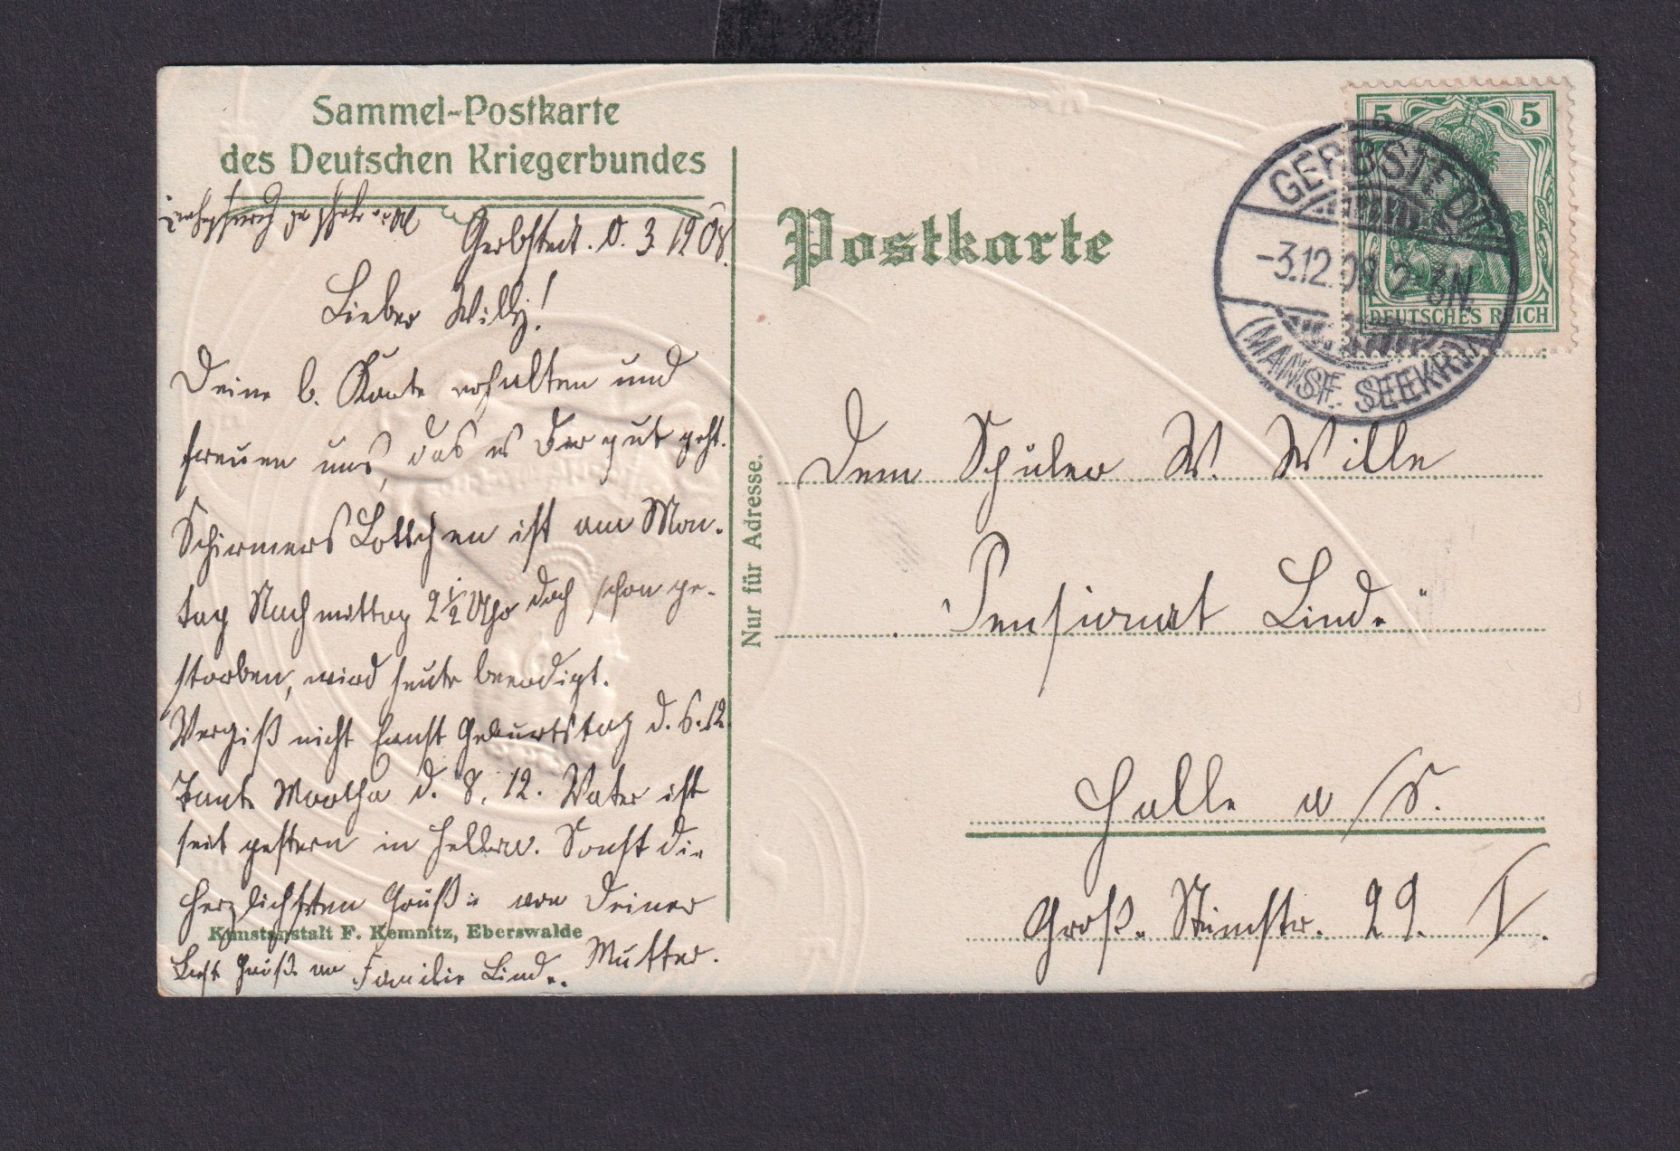 Sammel-Postkarte
des Deutschen Kriegerbundes
Gerbstedt. D. 3. 1908.
Lieber Willy!
Deine l. Karte erhalten und
freuen uns, das es Dir gut geht.
Schirmers Lottchen ist am Mon-
tag Nachmittag 2 1/2 Uhr doch schon ge-
storben, wird heute beerdigt.
Vergiß nicht Ernst Geburtstag d. 6.12.
Tante Martha d. 8. 12. Vater ist
seit gestern in Halle. Sonst die
herzlichsten Grüße von Deiner
Kunstanstalt F. Kemnitz, Eberswalde
Mutter.
Grüße an Familie Linde.
Nur für Adresse.
Postkarte
5 5
DEUTSCHES REICH
GERBSTEDT
-3.12.08. 2-3N.
(MANSF. SEEKR.)
Dem Schüler W. Wille
Pensionat Linde
Halle a/S.
Groß. Steinstr. 29. I.